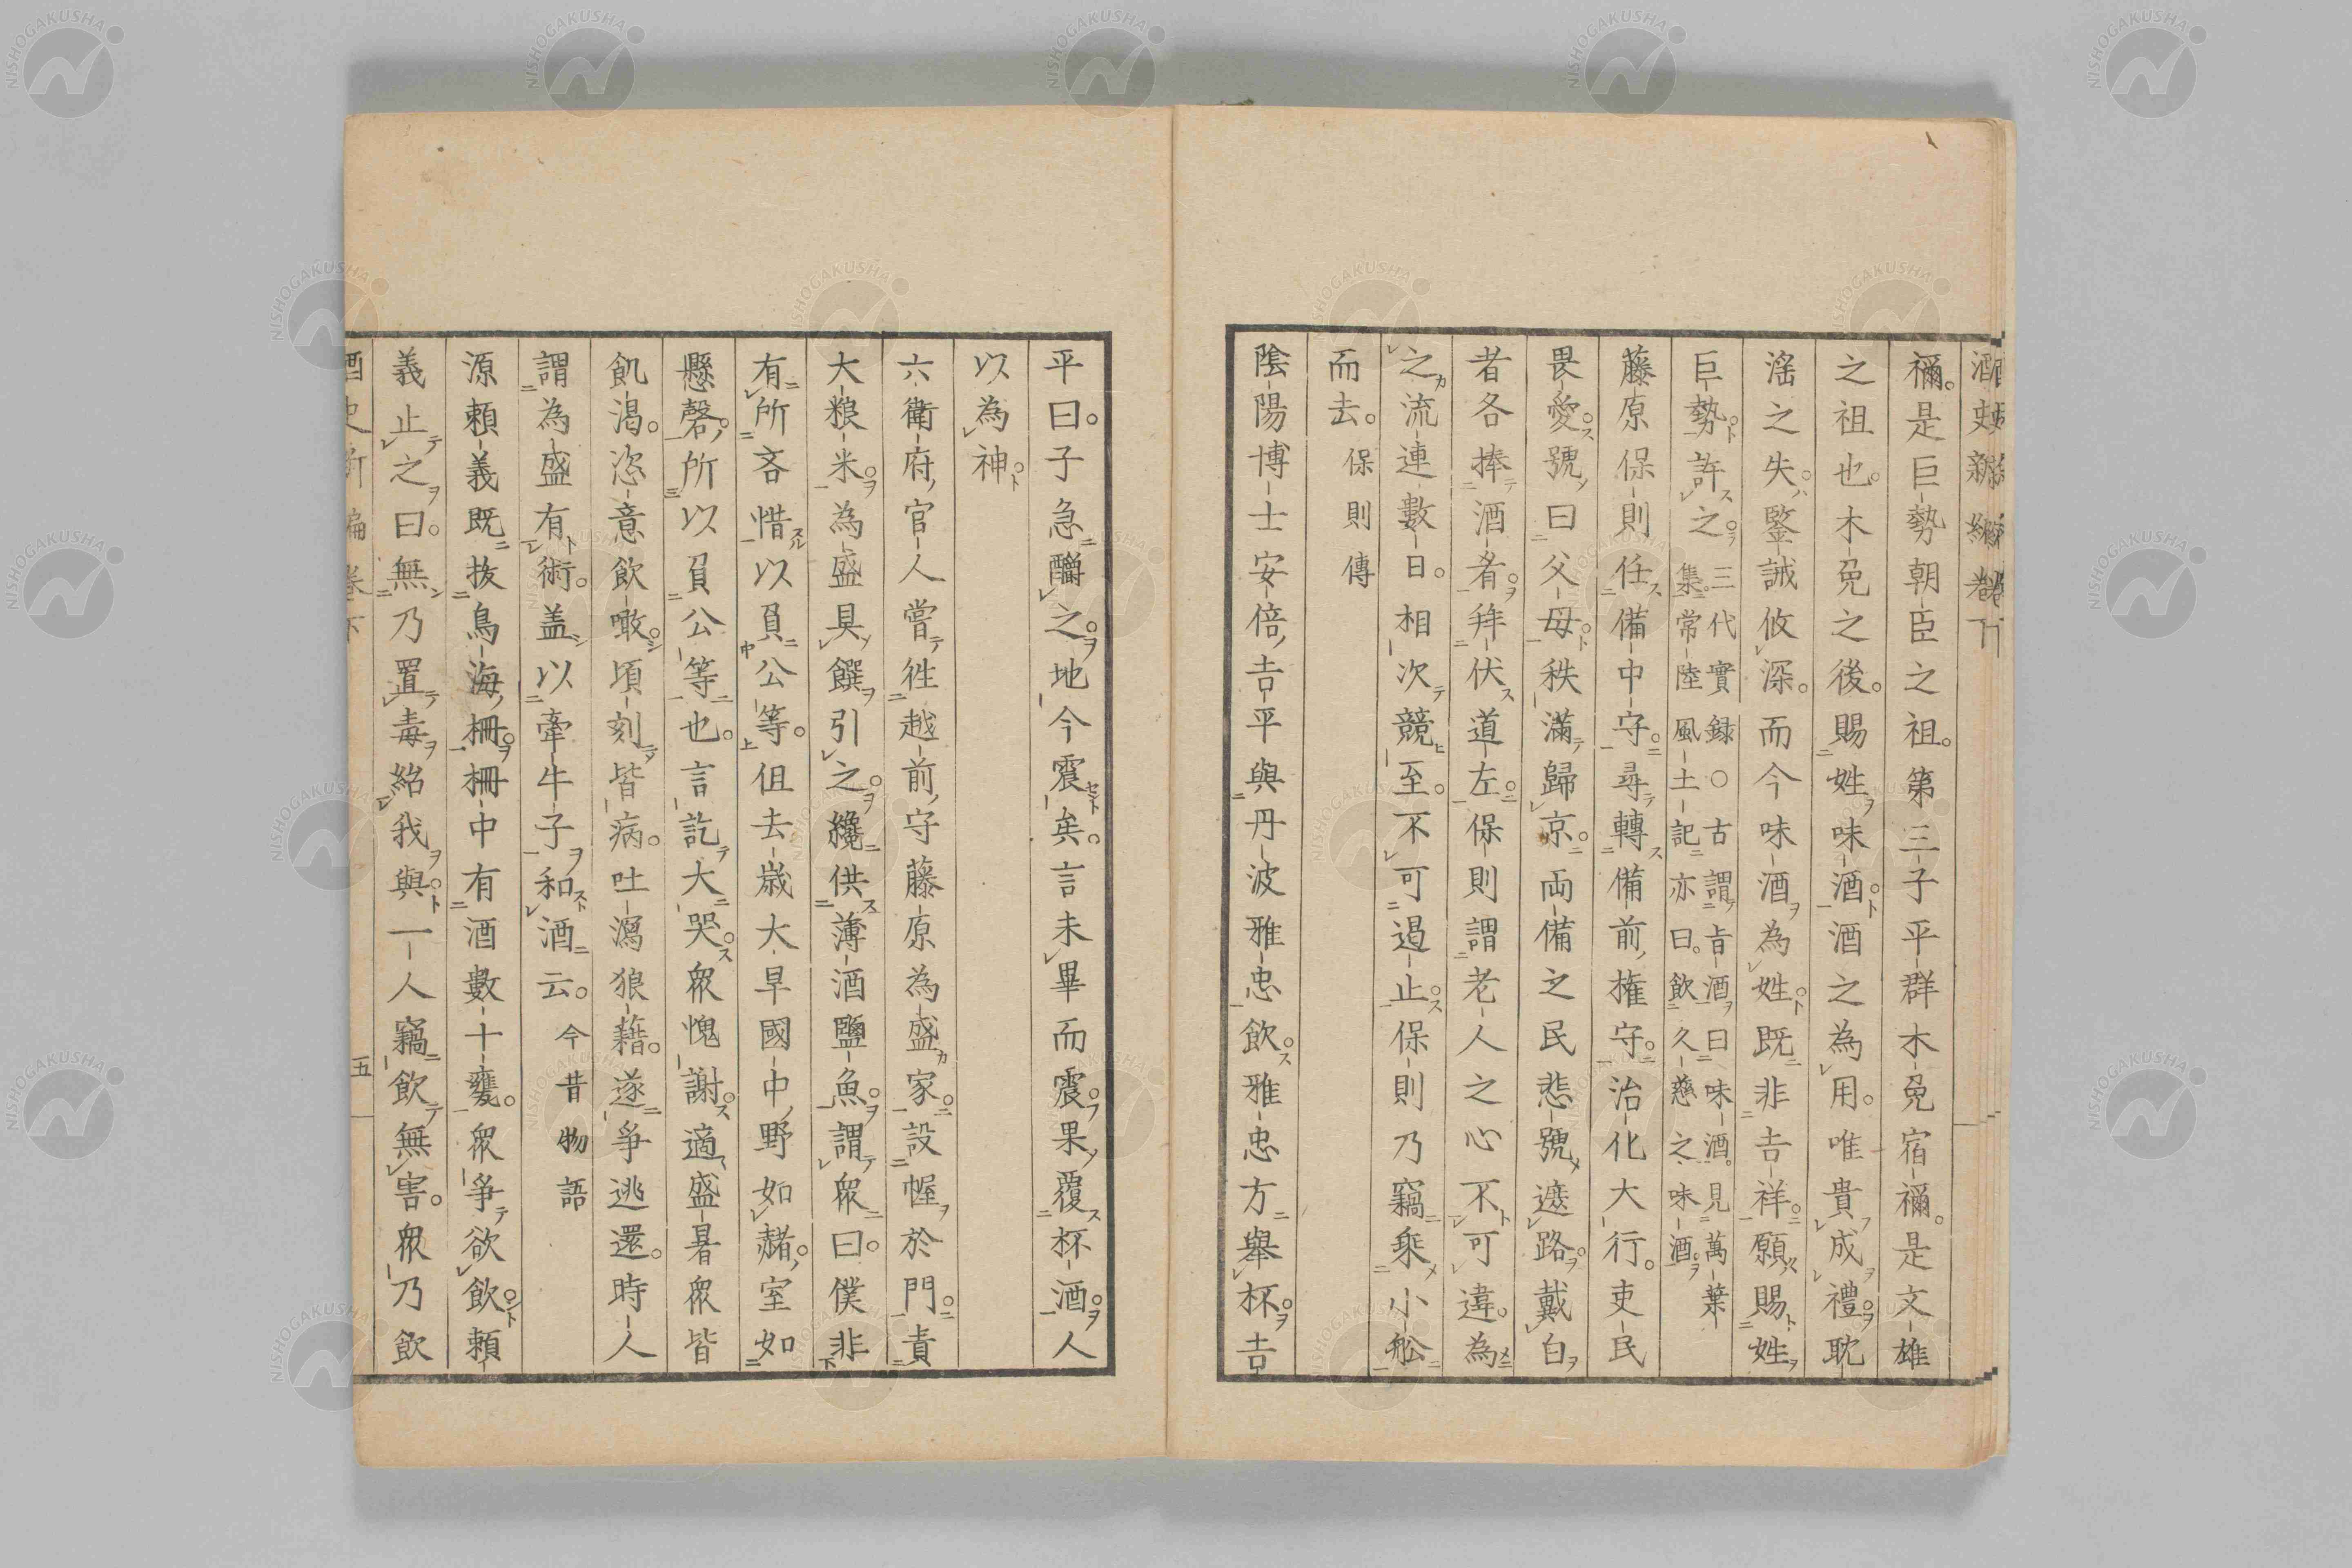 酒史新編卷下
禰。是巨勢朝臣之祖。第三子平群木免宿禰。是文雄
之祖也。木免之後。賜姓味酒。酒之為用。唯貴成禮。耽
滛之失。鑒誡攸深。而今味酒為姓。既非吉祥。願賜姓
巨勢。許之。三代實録○古謂旨酒曰味酒。見萬葉
集。常陸風土記亦曰。飲久慈之味酒。
藤原保則任備中守。尋轉備前權守。治化大行。吏民
畏愛。號曰父母。秩滿歸京。両備之民悲號遮路。戴白
者各捧酒肴。拜伏道左。保則謂老人之心不可違。為
之流連數日。相次競至。不可遏止。保則乃竊乘小舩
而去。保則傳
陰陽博士安倍吉平與丹波雅忠飲。雅忠方舉杯。吉
平曰。子急釂之。地今震矣。言未畢而震。果覆杯酒。人
以為神。
六衛府官人嘗徃越前守藤原為盛家。設幄於門。責
大粮米。為盛具饌引之。纔供薄酒鹽魚。謂衆曰。僕非
有所吝惜以負公等。但去歳大旱國中野如赭。室如
懸磬。所以負公等也。言訖大哭。衆愧謝。適盛暑衆皆
飢渇。恣意飲噉。頃刻皆病。吐瀉狼藉。遂爭逃還。時人
謂為盛有術。盖以牽牛子和酒云。今昔物語
源頼義既抜鳥海柵。柵中有酒數十甕。衆爭欲飲。頼
義止之曰。無乃置毒紿我與。一人竊飲無害。衆乃飲
酒史新編卷下
五
NISHOGAKUSHA